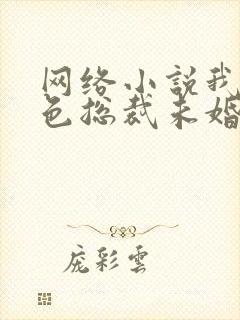 网络小说我
色总裁未婚
庞彩云